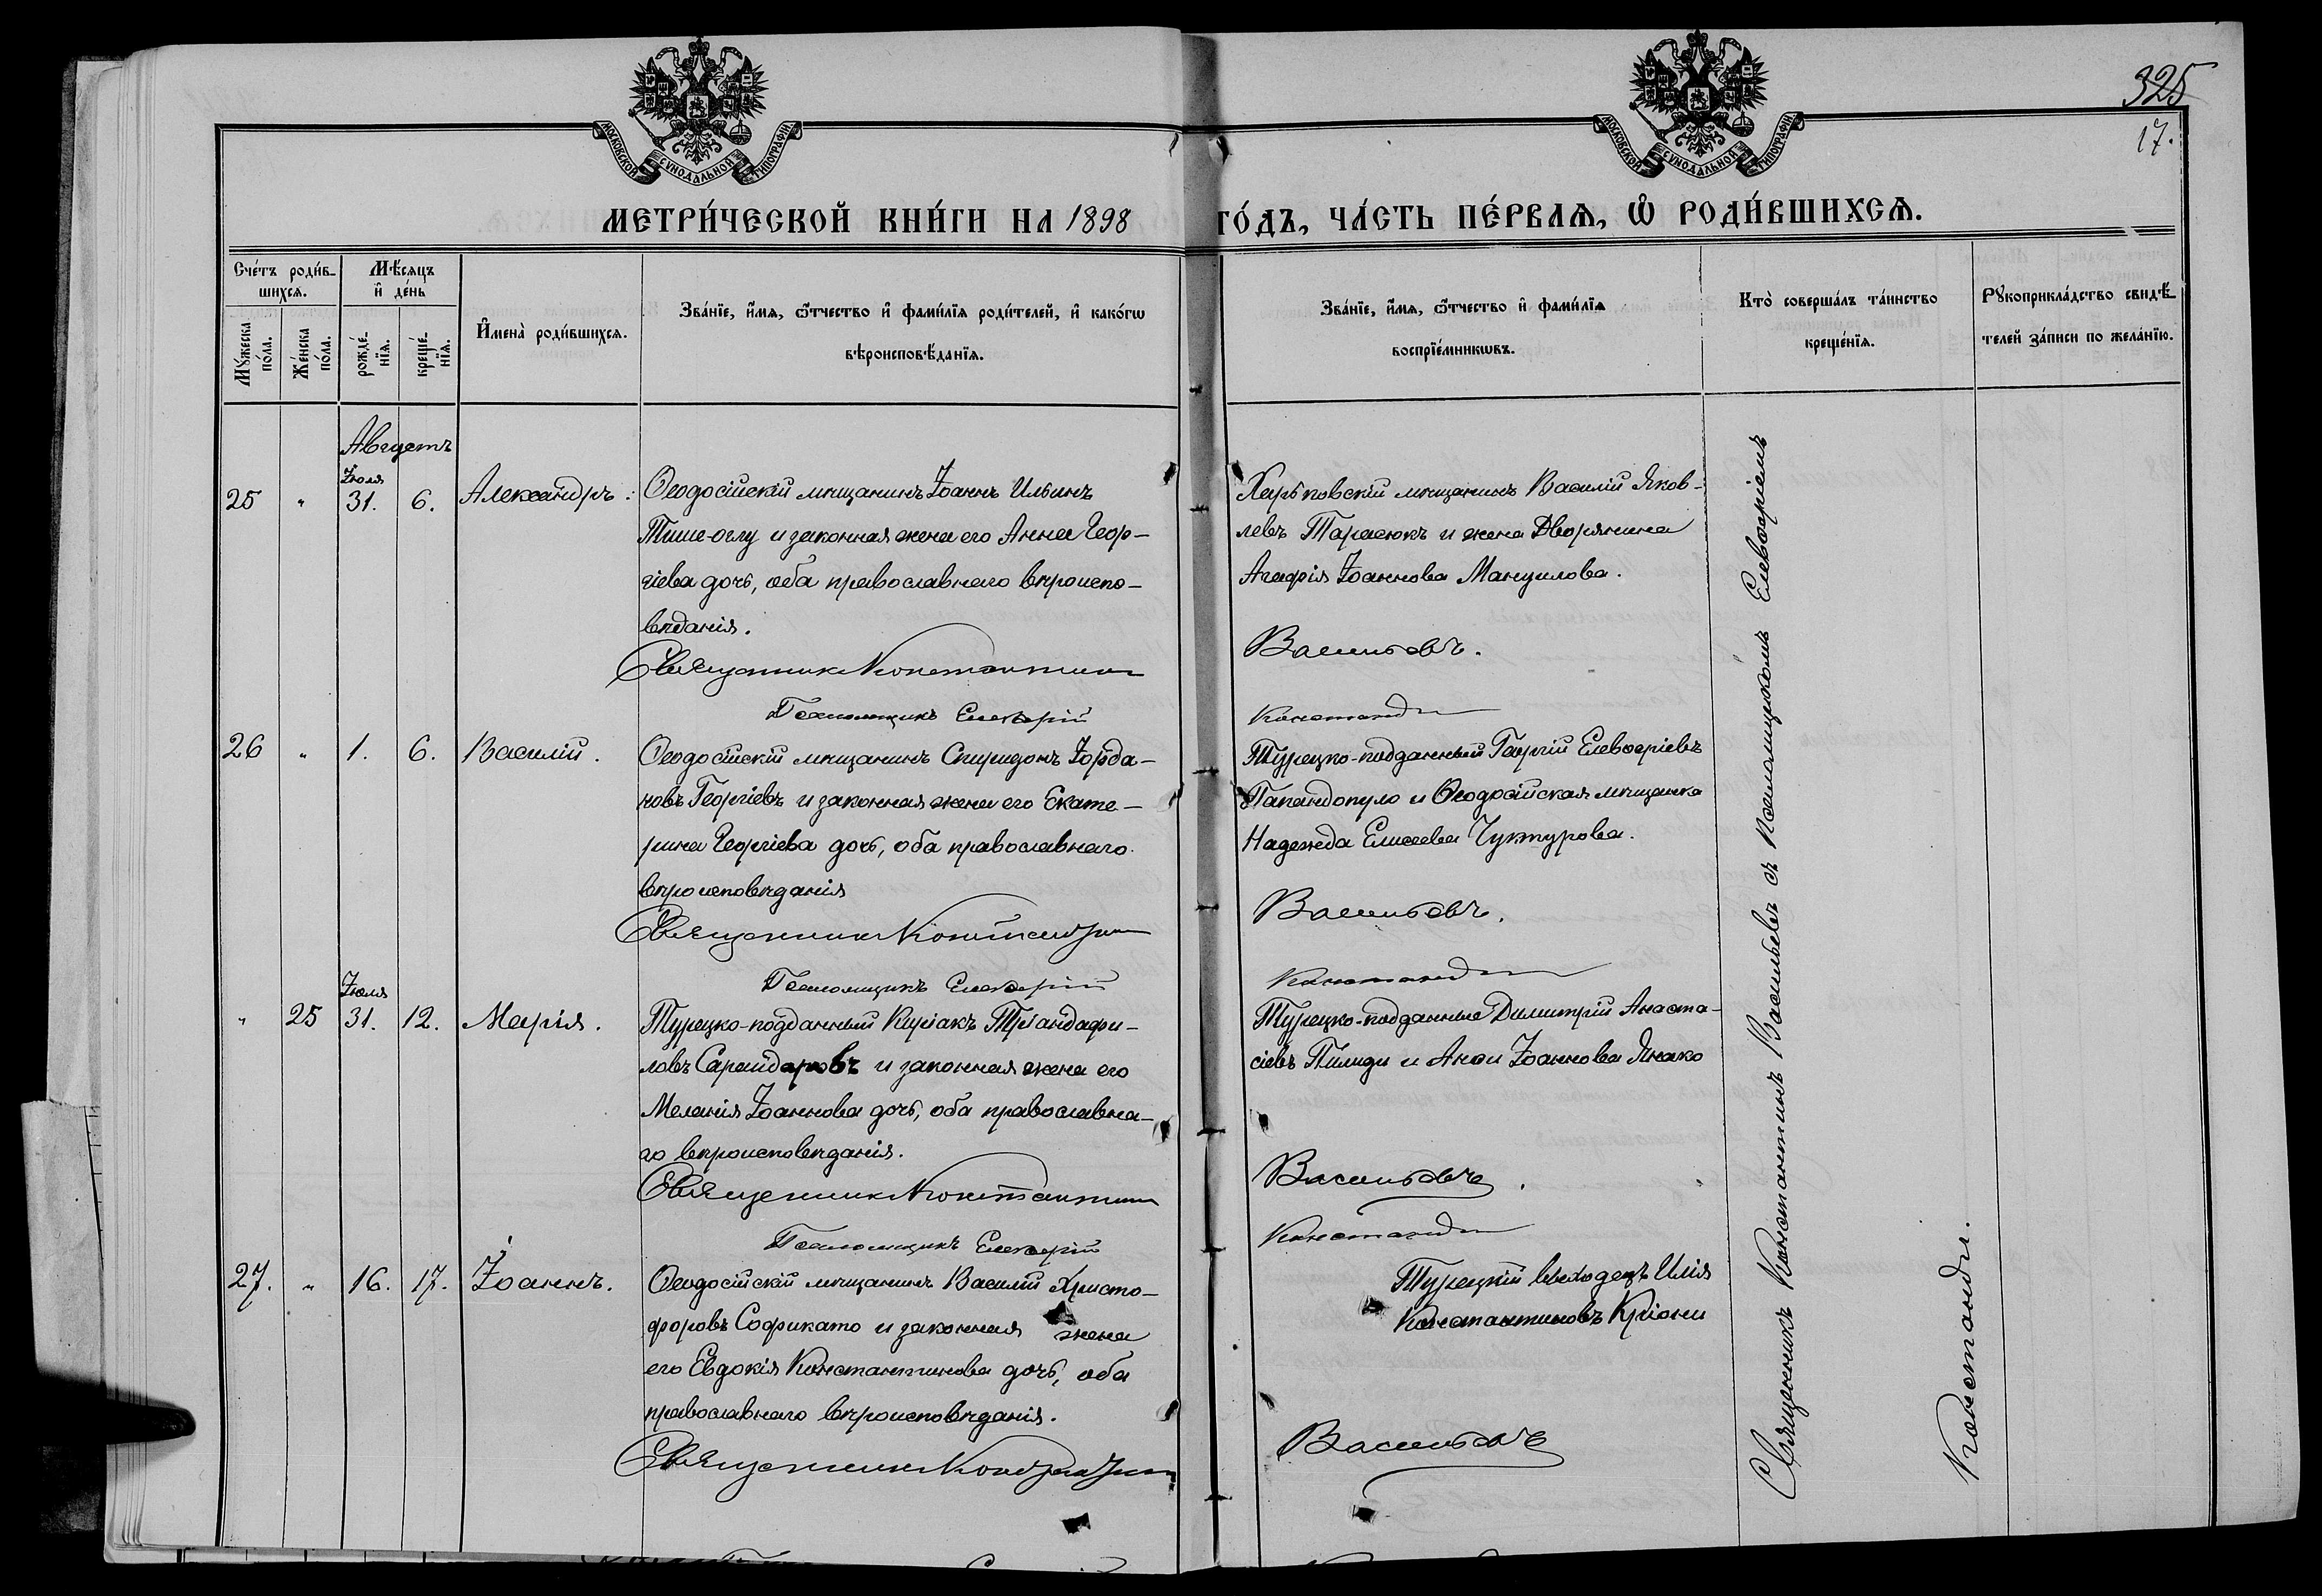 325
17.
МОСКОВСКОЙ СѴНОДАЛЬНОЙ ТИПОГРАФІИ
МОСКОВСКОЙ СѴНОДАЛЬНОЙ ТИПОГРАФІИ
МЕТРИ́ЧЕСКОЙ КНИ́ГИ НА 1898 ГО́ДЪ, ЧА́СТЬ ПЕ́РВАѦ, Ѽ РОДИ́ВШИХСѦ.
Сче́тъ роди́в-
шихсѧ.
Мꙋ́жеска по́ла.
Же́нска по́ла.
Мѣ́сяцъ
и҆ де́нь
рожде́-
нїѧ.
креще́-
нїѧ.
И҆мена̀ роди́вшихсѧ.
Зва́нїе, и҆́мѧ, ѻ҆́тчество и҆ фами́лїѧ роди́телей, и҆ како́гѡ
вѣроисповѣ́данїѧ.
Зва́нїе, и҆́мѧ, ѻ҆́тчество и҆ фами́лїѧ
воспрїе́мникѡвъ.
Кто̀ соверша́лъ та́инство
креще́нїѧ.
Рꙋкоприкла́дство свидѣ́-
телей за́писи по жела́нїю.
Августъ
Іюля
25 " 31. 6. Александръ.
Ѳеодосійскій мѣщанинъ Іоаннъ Ильинъ
Тише-оглу и законная жена его Анна Геор-
гіева дочь, оба православнаго вѣроиспо-
вѣданія.
Священник Константин
Псаломщикъ Елевѳерій
Харьковскій мѣщанинъ Василій Яков-
левъ Тарасюкъ и жена Дворянина
Агафія Іоаннова Мануилова.
Васильевъ.
Констанди
26 " 1. 6. Василій.
Ѳеодосійскій мѣщанинъ Спиридонъ Іорда-
новъ Георгіевъ и законная жена его Екате-
рина Георгіева дочь, оба православнаго
вѣроисповѣданія
Священник Константин
Псаломщикъ Елевѳерій
Турецко-подданный Георгій Елевѳеріевъ
Папандопуло и Ѳеодосійская мѣщанка
Надежда Елисеева Чуктурова.
Васильевъ.
Констанди
Іюля
" 25 31. 12. Марія.
Турецко-подданный Киріакъ Тріандафи-
ловъ Сарандаровъ и законная жена его
Меланія Іоаннова дочь, оба православна-
го вѣроисповѣданія.
Священник Константин
Псаломщикъ Елевѳерій
Турецко-подданные Димитрій Анаста-
сіевъ Пилиди и Анна Іоаннова Янако
Васильевъ.
Констанди
27. " 16. 17. Іоаннъ.
Ѳеодосійскій мѣщанинъ Василій Христо-
форовъ Софикато и законная жена
его Евдокія Константинова дочь, оба
православнаго вѣроисповѣданія.
Священник Константин
Турецкій выходецъ Илія
Константиновъ Кріони
Васильевъ
Священникъ Константинъ Васильевъ съ псаломщикомъ Елевѳеріемъ
Констанди.